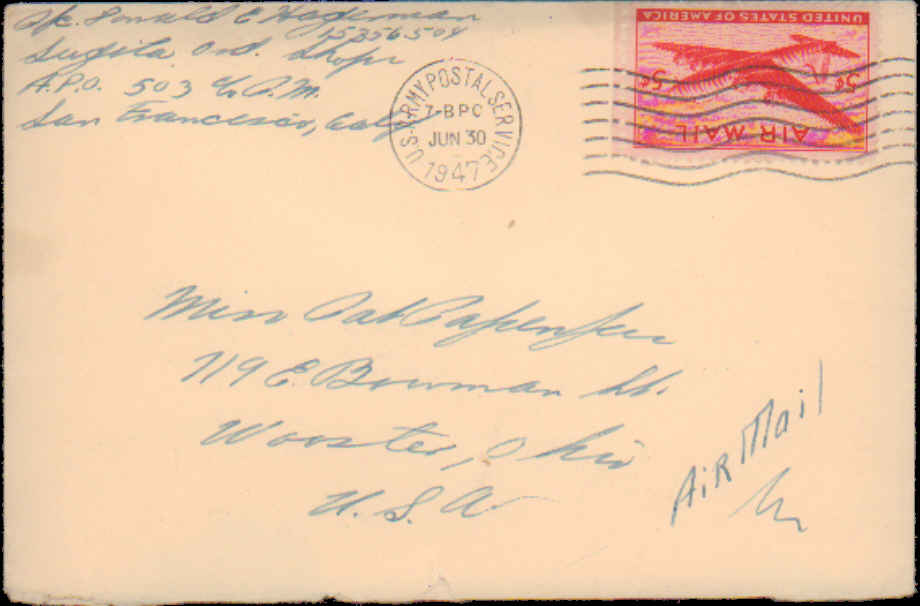 Pfc. Donald E Hagerman
15356504
Sugita Ord. Shops
A.P.O. 503 c/o P.M.
San Francisco, Calif
U.S. ARMY POSTAL SERVICE
7-BPO
JUN 30
1947
UNITED STATES OF AMERICA
5¢ 5¢
AIR MAIL
Miss Pat
719 E. Bowman St.
Wooster, Ohio
U.S.A.
AiR Mail